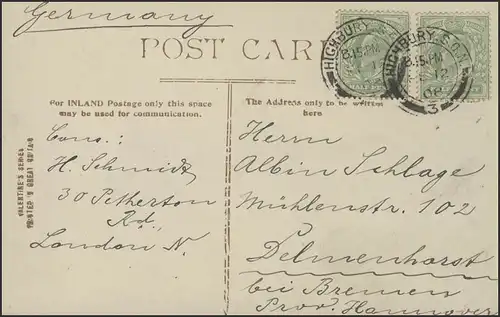 Germany
POST CARD
HIGHBURY S.O. N.
8.15 PM
12
08
3
HIGHBURY
8.15 PM
HALF PE
For INLAND Postage only this space
may be used for communication.
The Address only to be written
here
Cons:
H. Schmidt
30 Petherton
Rd.
London N.
Herrn
Albin Schlage
Mühlenstr. 102
Delmenhorst
bei Bremen
Prov. Hannover
VALENTINE'S SERIES
PRINTED IN GREAT BRITAIN